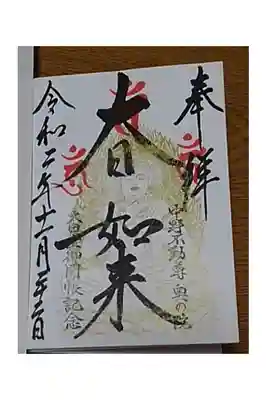 奉拝
中野不動尊 奥の院
大日如来
大日如来御開帳記念
令和二年十一月二十二日